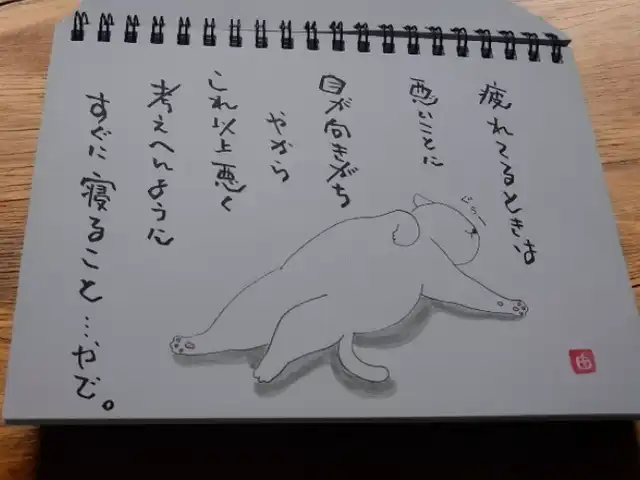 疲れてるときは
悪いことに
目が向きがち
やから
これ以上悪く
考えへんように
すぐに寝ること…やで。
ぐぅー